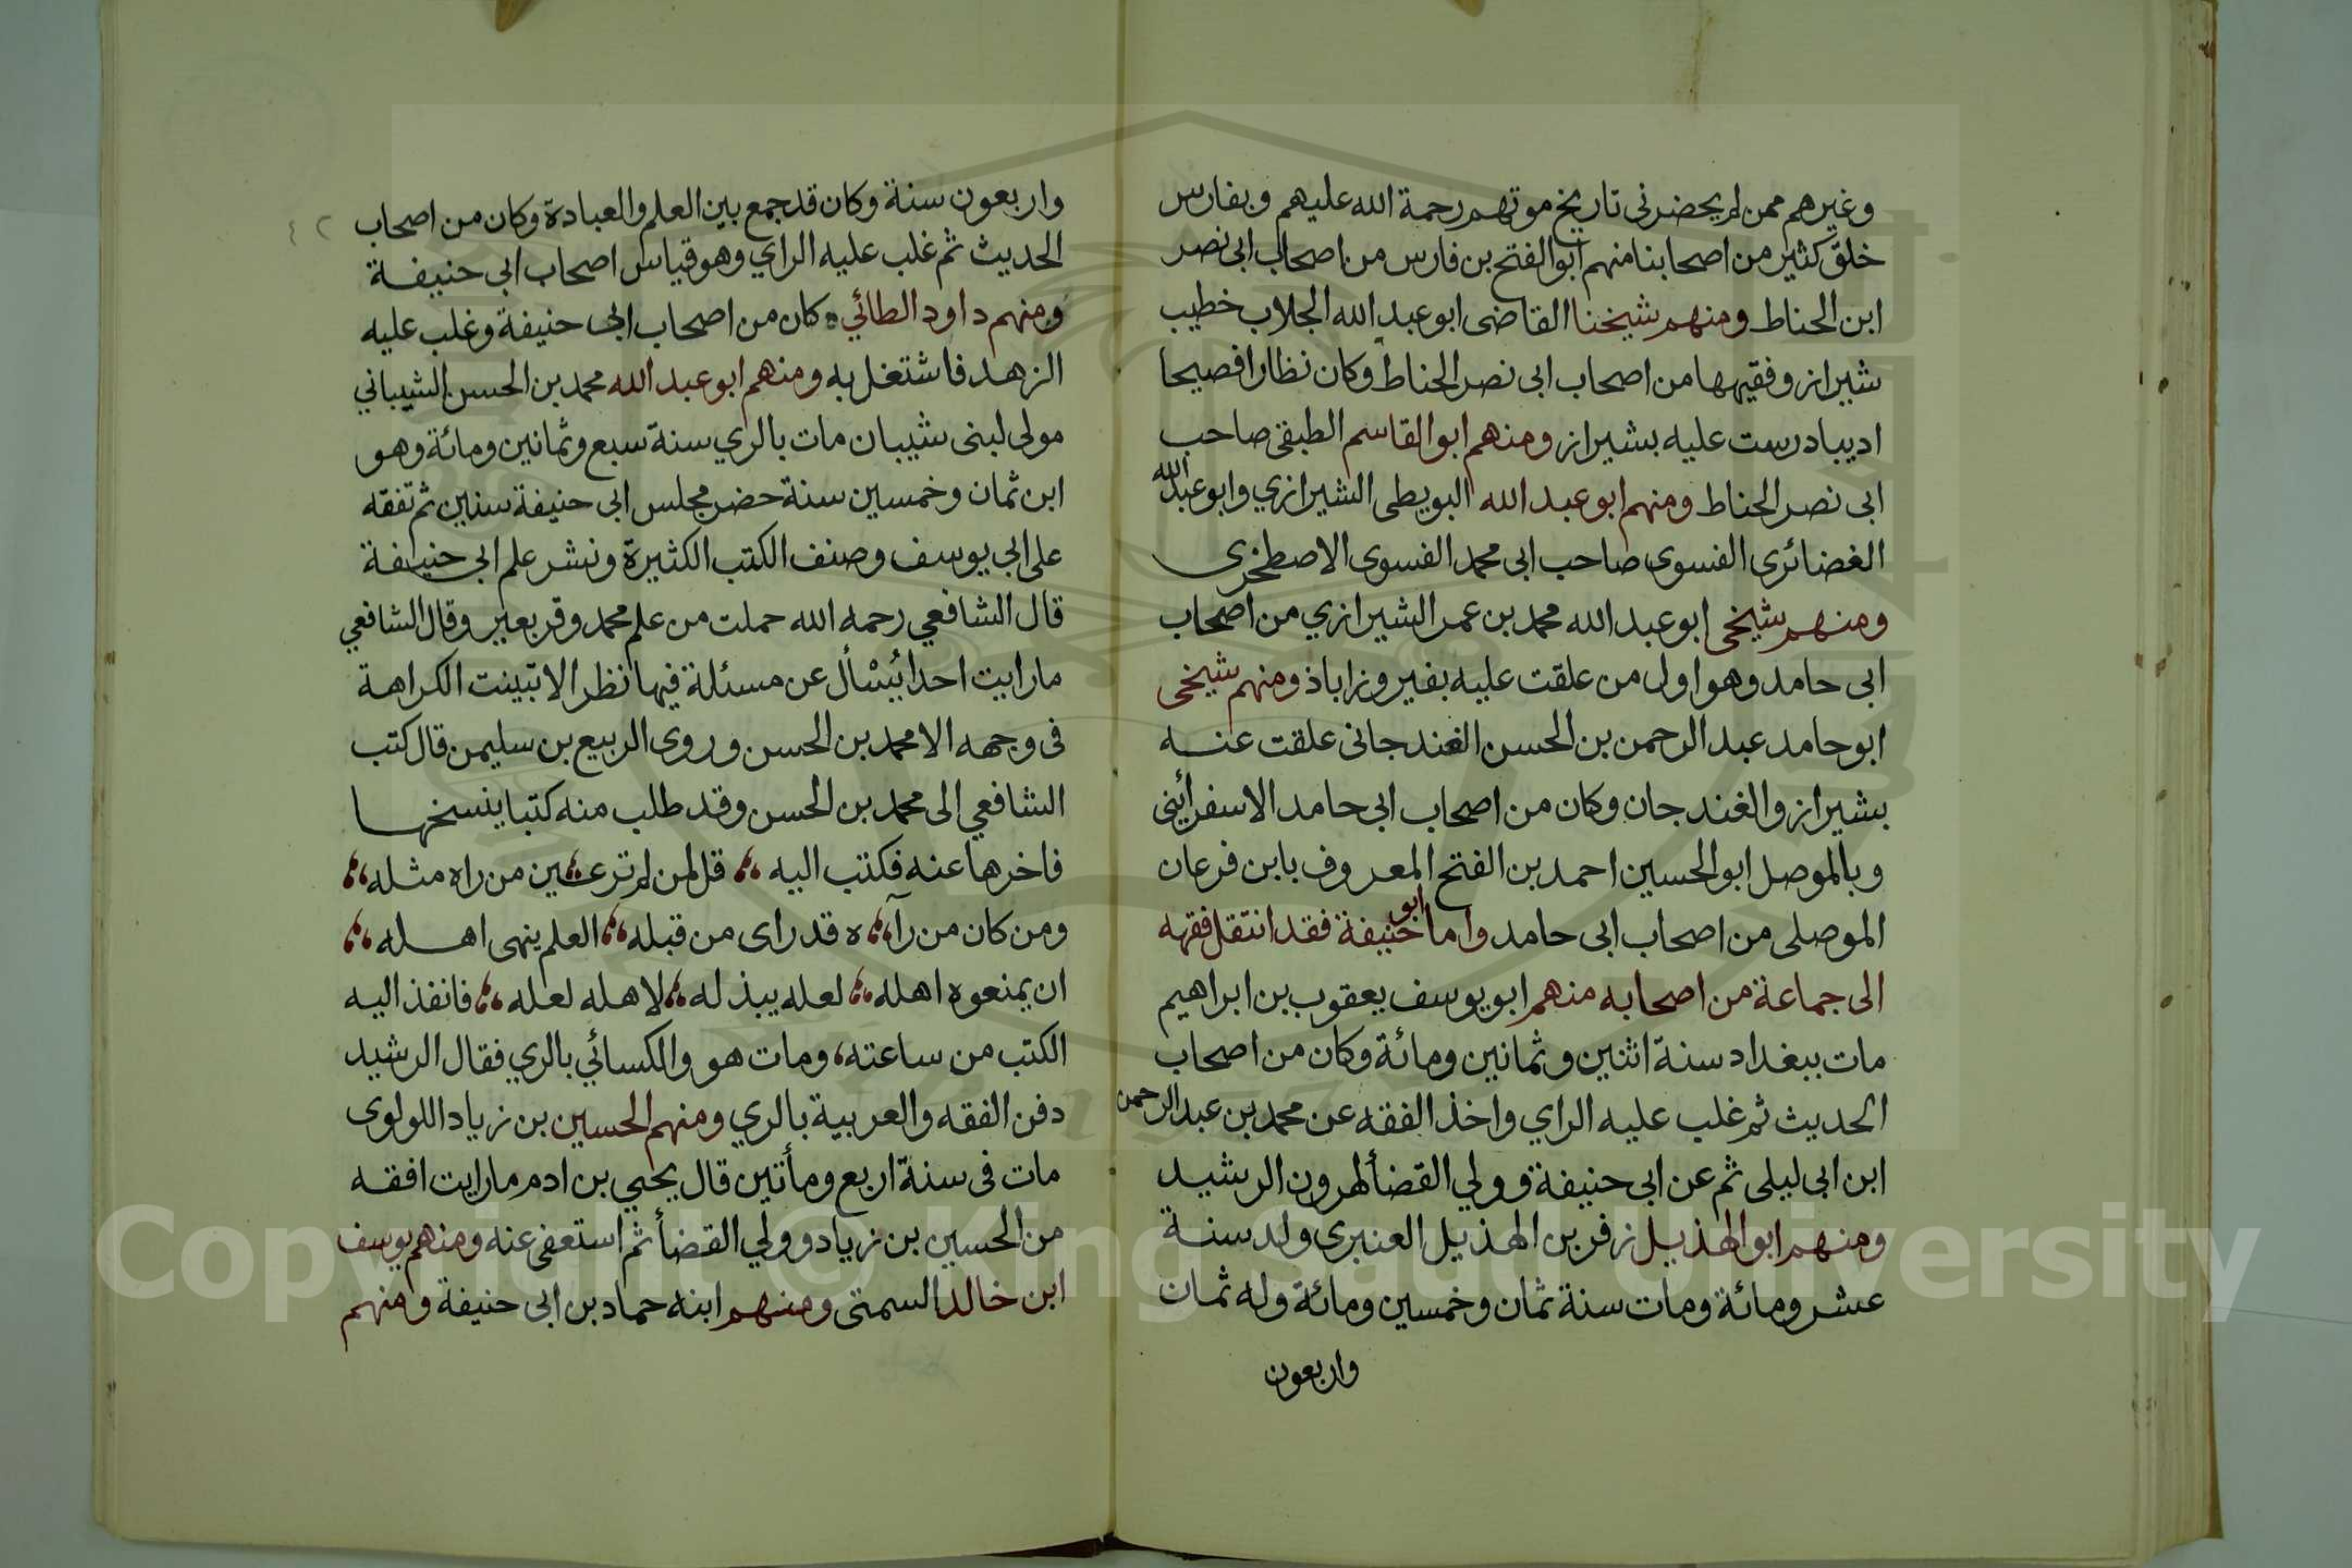 وغيرهم ممن لم يحضرني تاريخ موتهم رحمة الله عليهم وبفارس
خلق كثير من اصحابنا منهم ابو الفتح بن فارس من اصحاب ابى نصر
ابن الحناط ومنهم شيخنا القاضى ابو عبد الله الجلاب خطيب
شيراز وفقيهها من اصحاب ابى نصر الحناط وكان نظارا فصيحا
اديبا درست عليه بشيراز ومنهم ابو القاسم الطبقى صاحب
ابى نصر الحناط ومنهم ابو عبد الله البويطى الشيرازي وابو عبد الله
الغضائرى الفسوى صاحب ابى محمد الفسوى الاصطخرى
ومنهم شيخى ابو عبد الله محمد بن عمر الشيرازي من اصحاب
ابى حامد وهو اول من علقت عليه بفيروزاباذ ومنهم شيخى
ابو حامد عبد الرحمن بن الحسن الغندجانى علقت عنه
بشيراز والغندجان وكان من اصحاب ابى حامد الاسفرأينى
وبالموصل ابو الحسين احمد بن الفتح المعروف بابن فرعان
الموصلى من اصحاب ابى حامد واما ابو حنيفة فقد انتقل فقهه
الى جماعة من اصحابه منهم ابو يوسف يعقوب بن ابراهيم
مات ببغداد سنة اثنين وثمانين ومائة وكان من اصحاب
الحديث ثم غلب عليه الراي واخذ الفقه عن محمد بن عبد الرحمن
ابن ابى ليلى ثم عن ابى حنيفة وولي القضأ لهرون الرشيد
ومنهم ابو الهذيل زفر بن الهذيل العنبرى ولد سنة
عشر ومائة ومات سنة ثمان وخمسين ومائة وله ثمان
واربعون
واربعون سنة وكان قد جمع بين العلم والعبادة وكان من اصحاب
الحديث ثم غلب عليه الراي وهو قياس اصحاب ابى حنيفة
ومنهم داود الطائي كان من اصحاب ابى حنيفة وغلب عليه
الزهد فاشتغل به ومنهم ابو عبد الله محمد بن الحسن الشيباني
مولى لبنى شيبان مات بالري سنة سبع وثمانين ومائة وهو
ابن ثمان وخمسين سنة حضر مجلس ابى حنيفة سنين ثم تفقه
على ابي يوسف وصنف الكتب الكثيرة ونشر علم ابى حنيفة
قال الشافعي رحمه الله حملت من علم محمد وقر بعير وقال الشافعي
مارايت احدا يُسْأل عن مسئلة فيها نظر الا تبينت الكراهة
فى وجهه الا محمد بن الحسن وروى الربيع بن سليمن قال كتب
الشافعي الى محمد بن الحسن وقد طلب منه كتبا ينسخها
فاخرها عنه فكتب اليه قل لمن لم ترعين من راه مثله
ومن كان من رآه قد راى من قبله العلم ينهى اهله
ان يمنعوه اهله لعله يبذله لاهله لعله فانفذ اليه
الكتب من ساعته، ومات هو والكسائي بالري فقال الرشيد
دفن الفقه والعربية بالري ومنهم الحسين بن زياد اللولوى
مات فى سنة اربع ومأتين قال يحيى بن ادم مارايت افقه
من الحسين بن زياد وولي القضأ ثم استعفى عنه ومنهم يوسف
ابن خالد السمتى ومنهم ابنه حماد بن ابى حنيفة ومنهم
Copyright © King Saud University